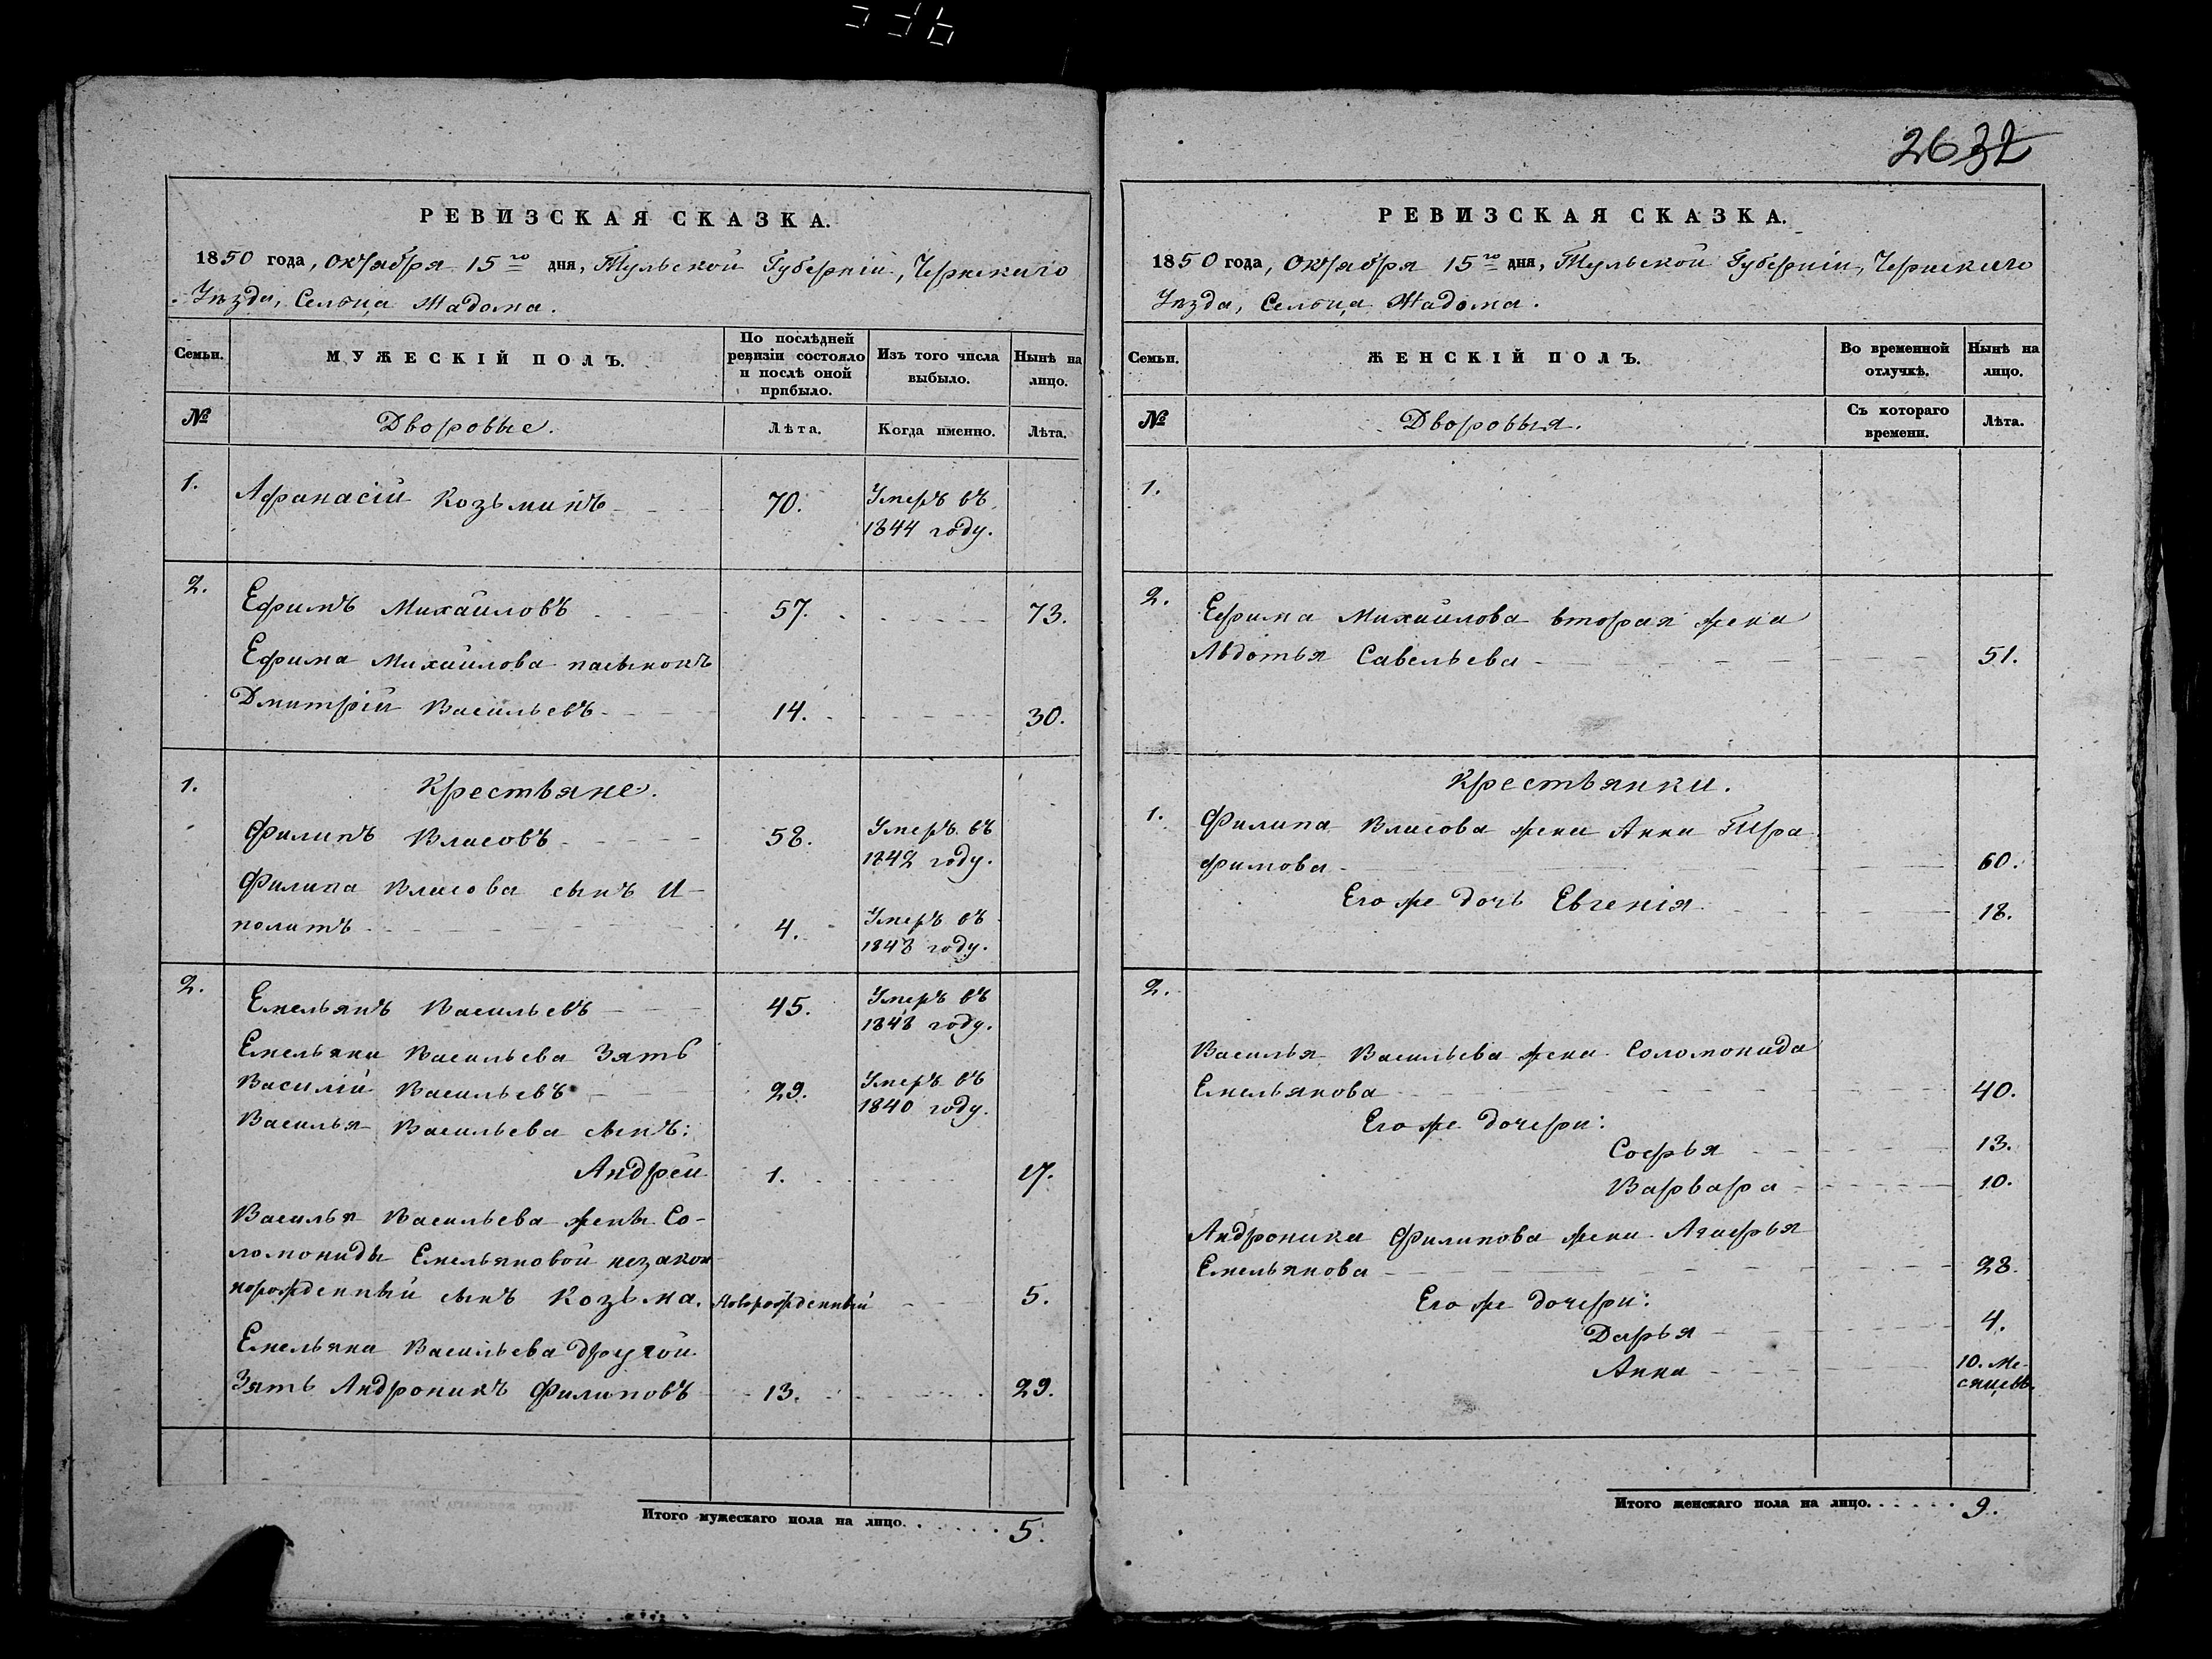 2632
РЕВИЗСКАЯ СКАЗКА.
1850 года, Октября 15го дня, Тульской Губерніи, Чернскаго
Уѣзда, Сельца Жадома.
Семьи.
МУЖЕСКІЙ ПОЛЪ.
По послѣдней ревизіи состояло и послѣ оной прибыло.
Изъ того числа выбыло.
Нынѣ на лицо.
№
Дворовые.
Лѣта.
Когда именно.
Лѣта.
1.
Афанасій Козьминъ
70.
Умеръ въ
1844 году.
2.
Ефимъ Михайловъ
57.
73.
Ефима Михайлова пасынокъ
Дмитрій Васильевъ
14.
30.
1.
Крестьяне.
Филипъ Власовъ
58.
Умеръ въ
1842 году.
Филипа Власова сынъ И-
политъ
4.
Умеръ въ
1848 году.
2.
Емельянъ Васильевъ
45.
Умеръ въ
1848 году.
Емельяна Васильева Зять
Василій Васильевъ
29.
Умеръ въ
1840 году.
Василья Васильева сынъ:
Андрей
1.
17.
Василья Васильева жены Со-
ломониды Емельяновой незакон
норожденный сынъ Козьма.
Новорожденный
5.
Емельяна Васильева другой
Зять Андроникъ Филиповъ
13.
29.
Итого мужескаго пола на лицо. . . . . . 5.
РЕВИЗСКАЯ СКАЗКА.
1850 года, Октября 15го дня, Тульской Губерніи, Чернскаго
Уѣзда, Сельца Жадома.
Семьи.
ЖЕНСКІЙ ПОЛЪ.
Во временной отлучкѣ.
Нынѣ на лицо.
№
Дворовыя.
Съ котораго времени.
Лѣта.
1.
2.
Ефима Михайлова вторая жена
Авдотья Савельева
51.
Крестьянки.
1.
Филипа Власова жена Анна
фимова
60.
Его же дочь Евгенія
18.
2.
Василья Васильева жена Соломонида
Емельянова
40.
Его же дочери:
Софья
13.
Варвара
10.
Андроника Филипова жена Агафья
Емельянова
28.
Его же дочери:
Дарья
4.
Анна
10. Ме-
сяцевъ.
Итого женскаго пола на лицо. . . . . . 9.